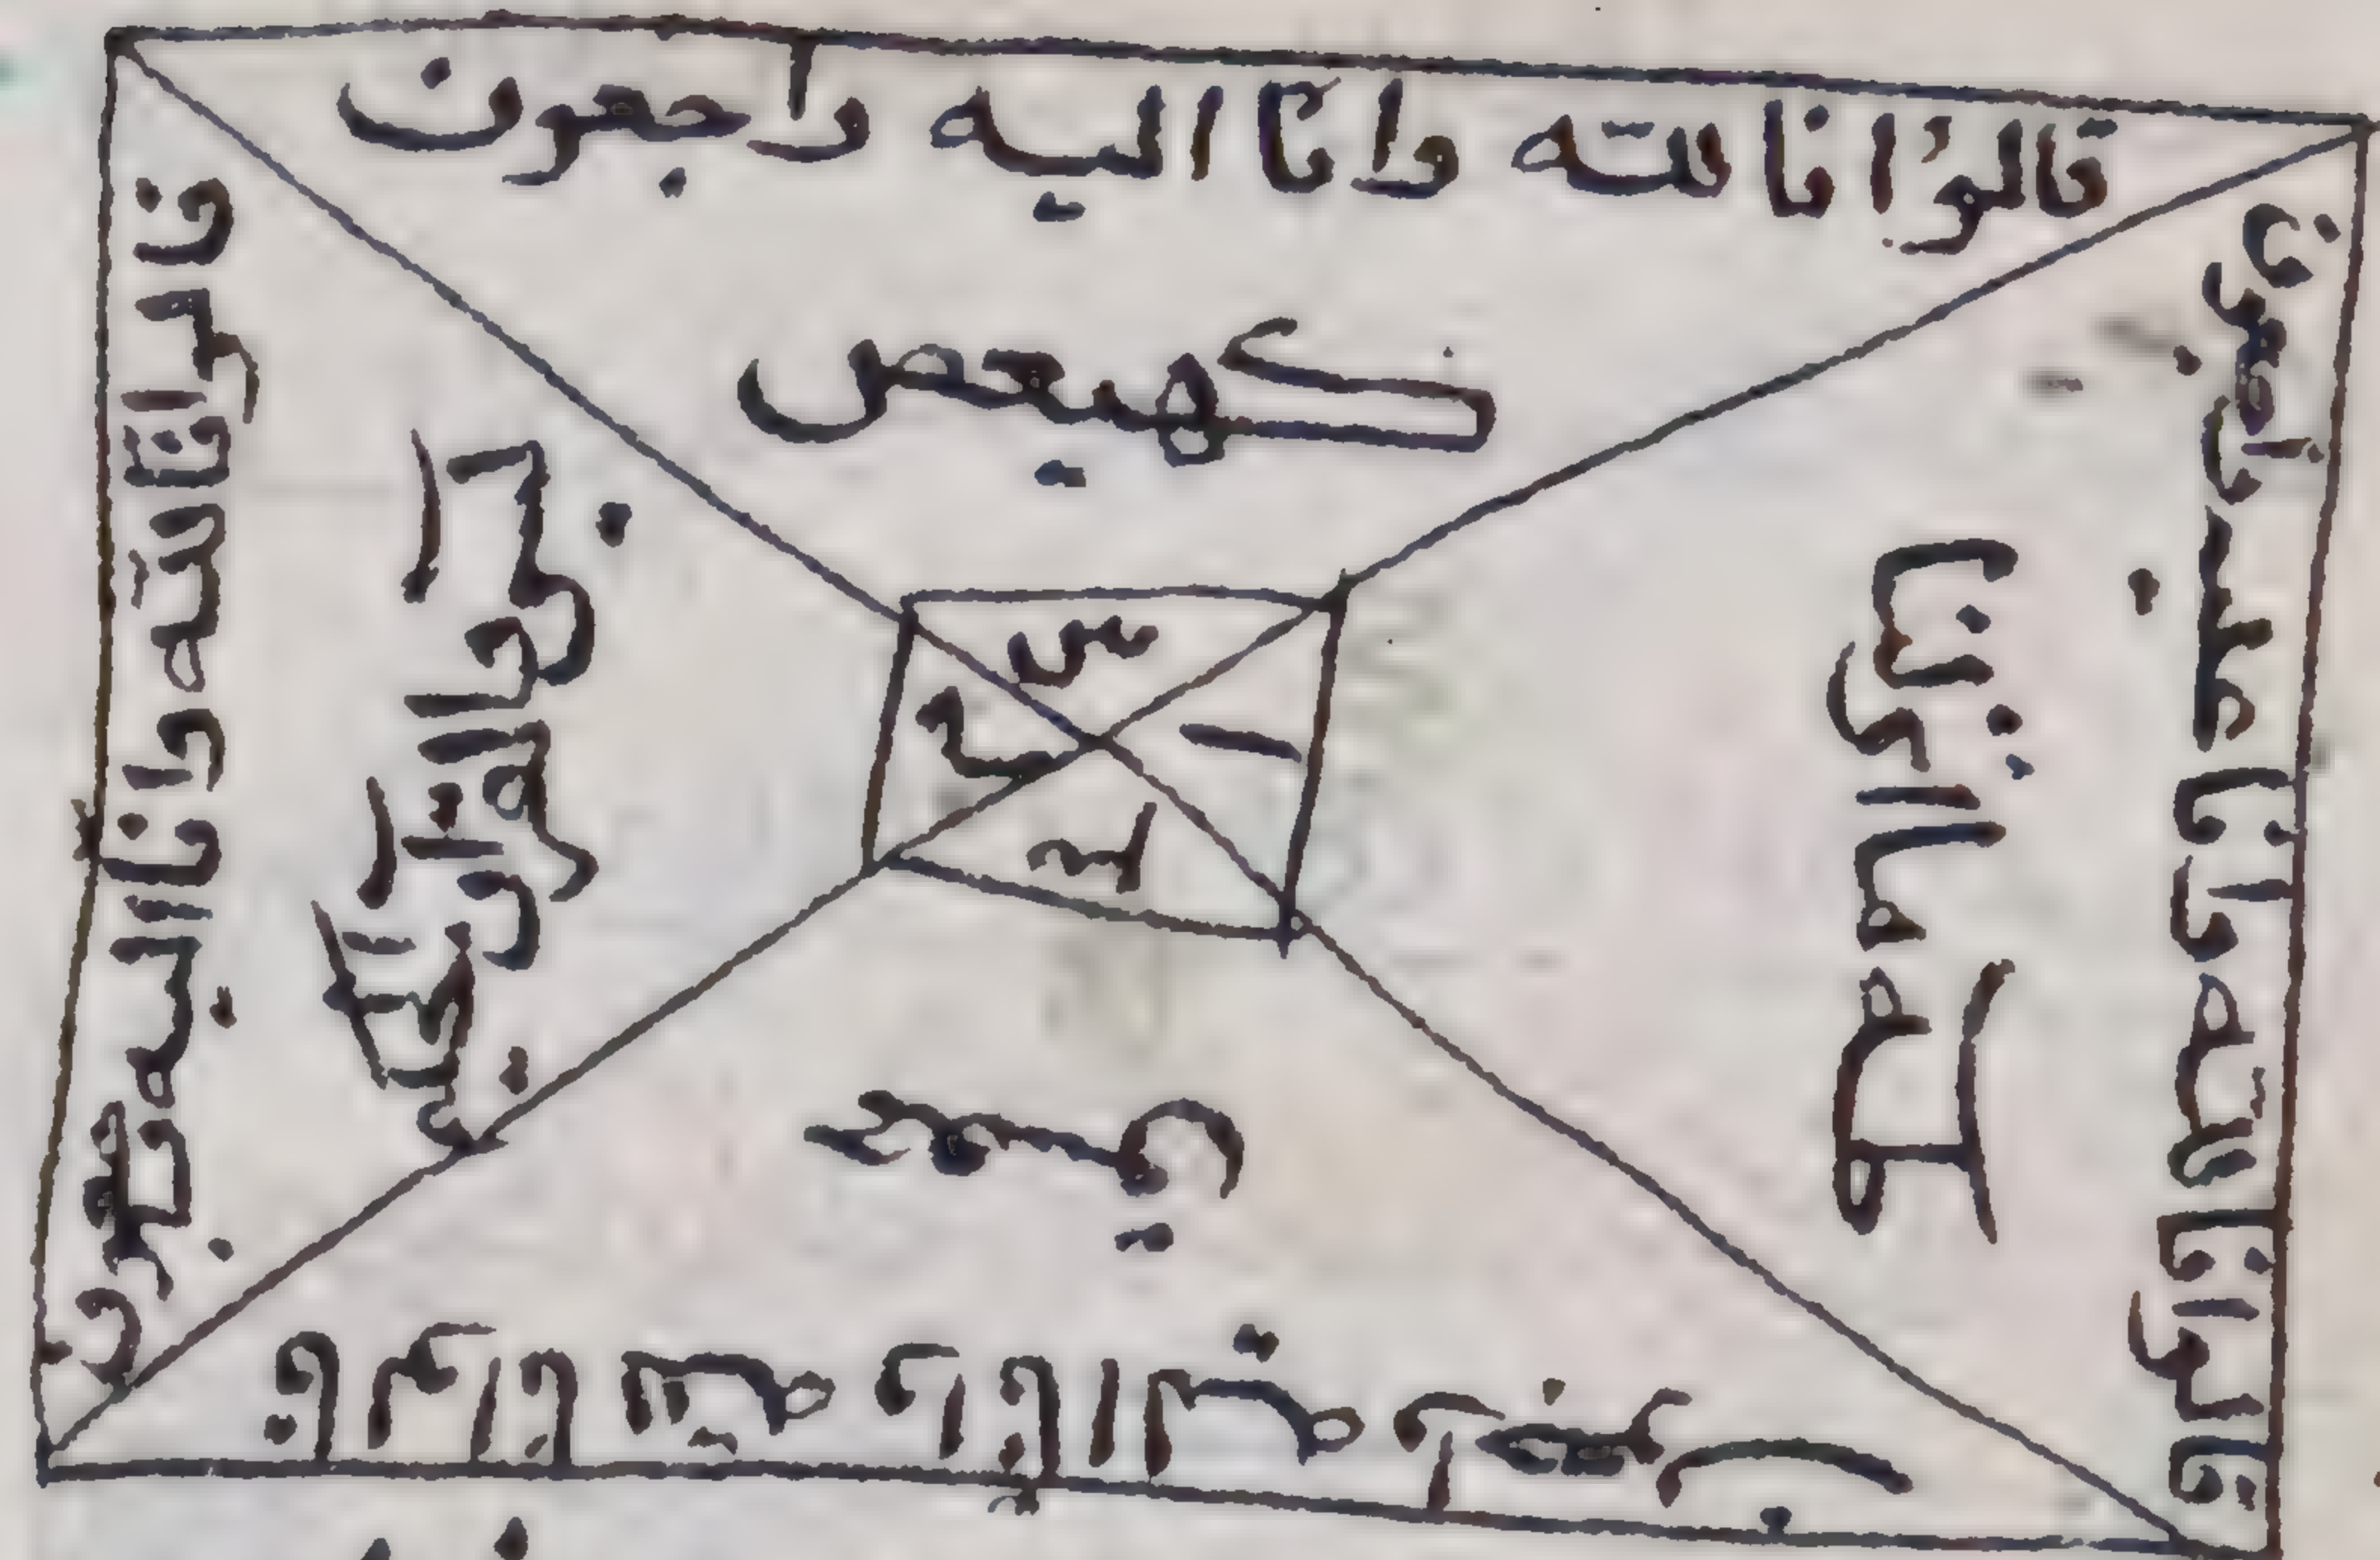 قالوا انا لله وانا اليه راجعون
كهيعص
قالوا انا لله وانا اليه راجعون
طه ما انزلنا
قالوا انا لله وانا اليه راجعون
قالوا انا لله وانا اليه راجعون
والقرآن الحكيم
س
ا